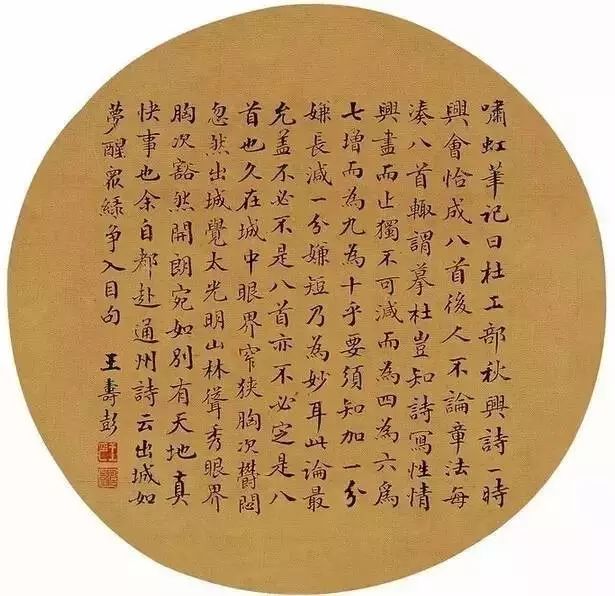 嘯虹筆記曰杜工部秋興詩一時
興會恰成八首後人不論章法每
湊八首輒謂摹杜豈知詩寫性情
興盡而止獨不可減而為四為六爲
七增而為九為十乎要須知加一分
嫌長減一分嫌短乃為妙耳此論最
允盖不必不是八首亦不必定是八
首也久在城中眼界窄狹胸次鬱悶
忽然出城覺太光明山林聳秀眼界
胸次豁然開朗宛如別有天地真
快事也余自都赴通州詩云出城如
夢醒眾綠争入目句 王壽彭